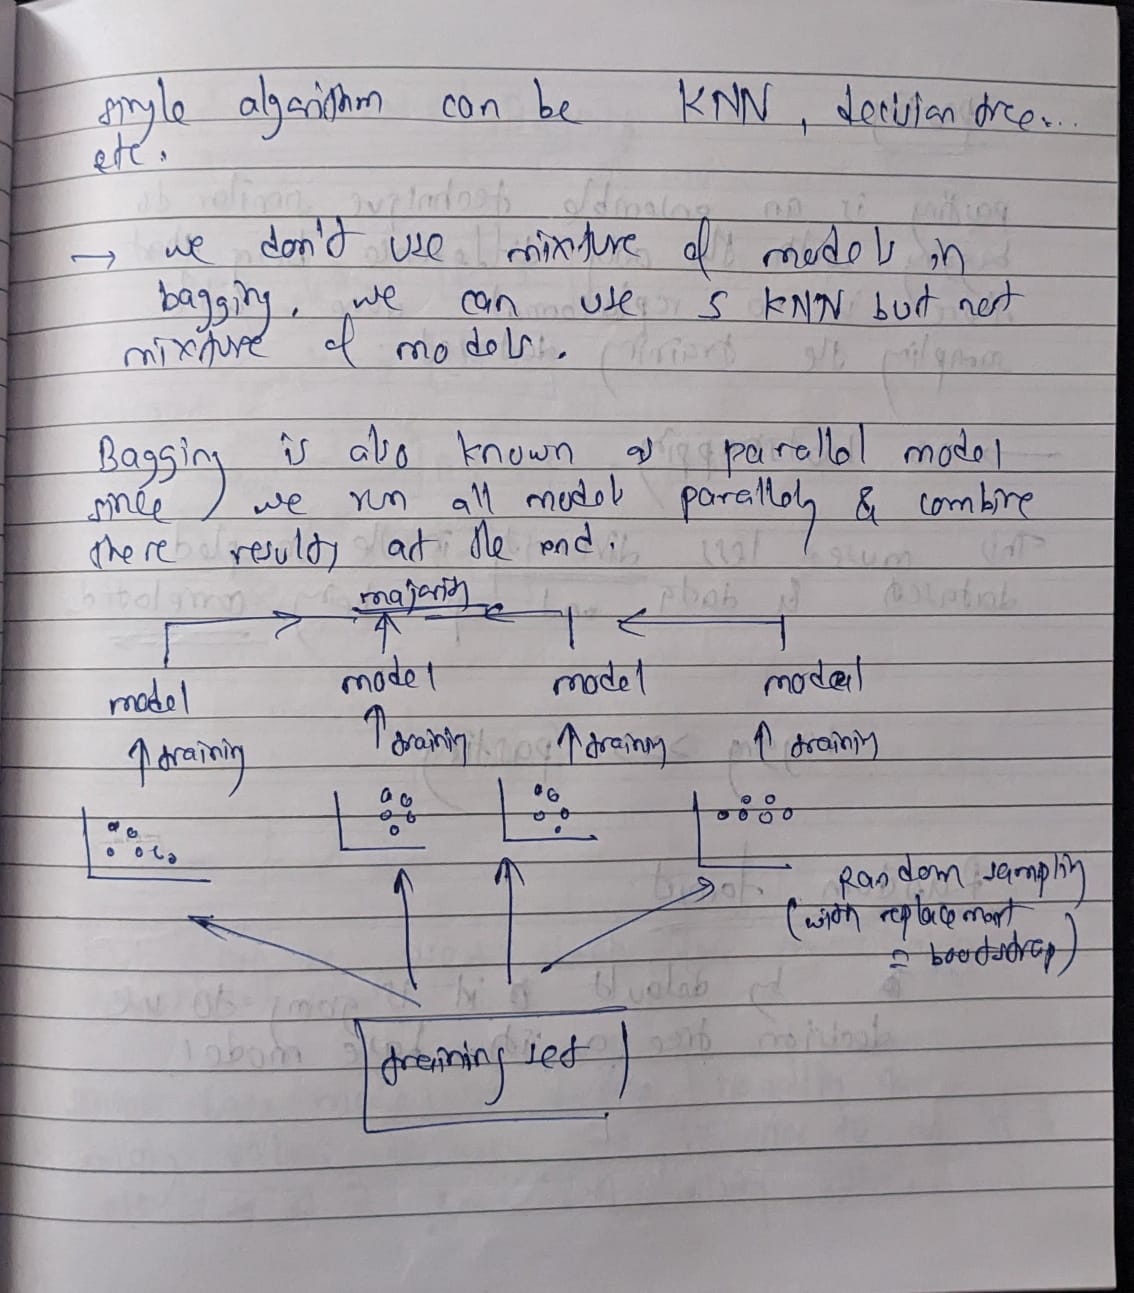 single algorithm can be KNN, decision tree...
etc.
→ we don't use mixture of models in
bagging. we can use 5 KNN but not
mixture of models.
Bagging is also known as parallel model
since we run all model parallely & combine
there results at the end.
majority
model model model model
↑ training ↑ training ↑ training ↑ training
Random sampling
(with replacement
= bootstrap)
training set